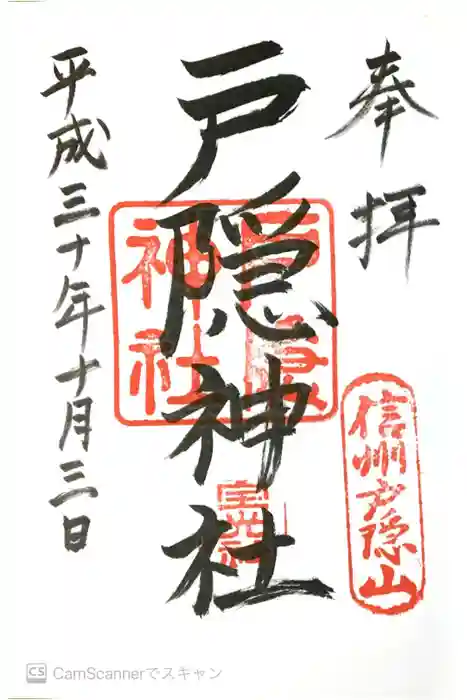 奉拝
信州戸隠山
戸隠神社
戸隠神社
宝光社
平成三十年十月三日
CS CamScannerでスキャン